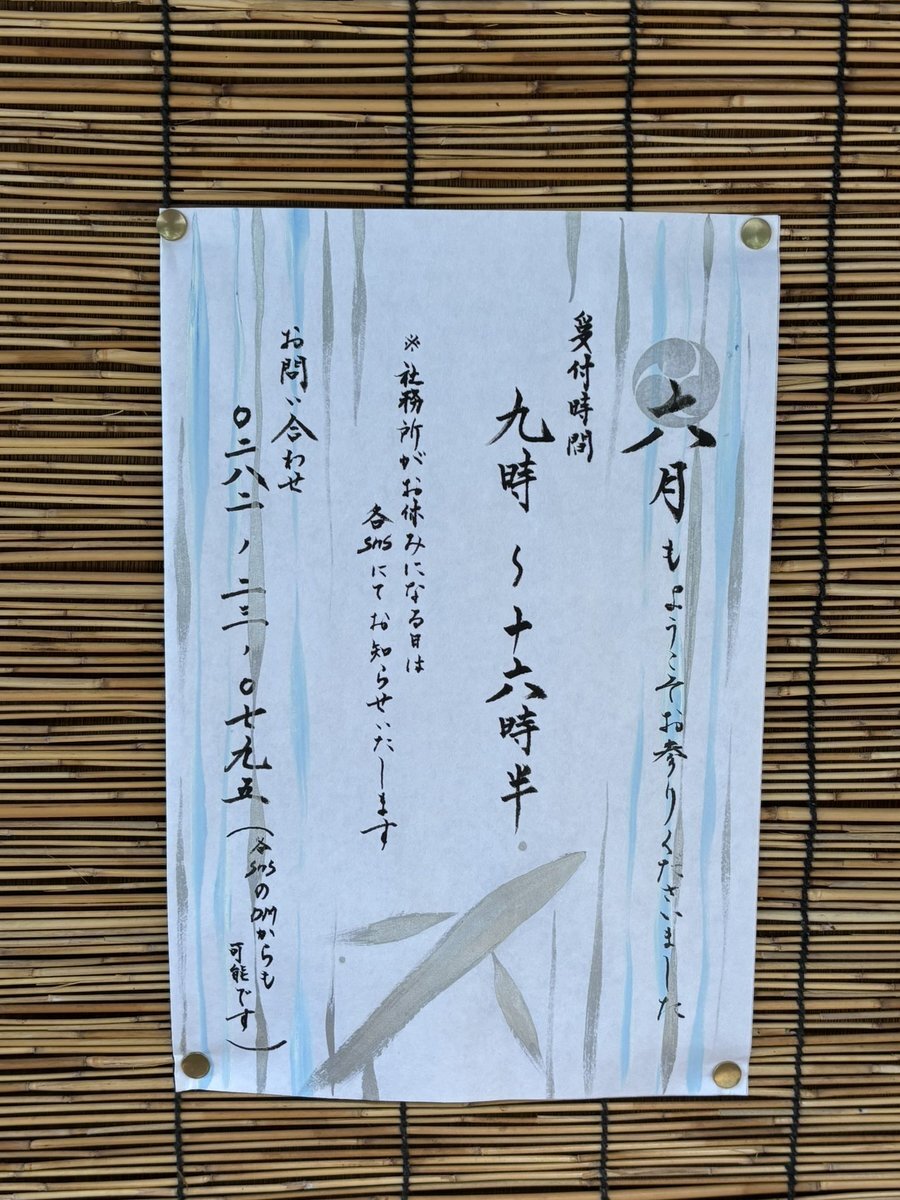 六月もようこそお参りくださいました
受付時間
九時〜十六時半
※社務所がお休みになる日は
各SNSにてお知らせいたします
お問い合わせ
〇二八二、二三、〇七九五(各SNSのDMからも
可能です)